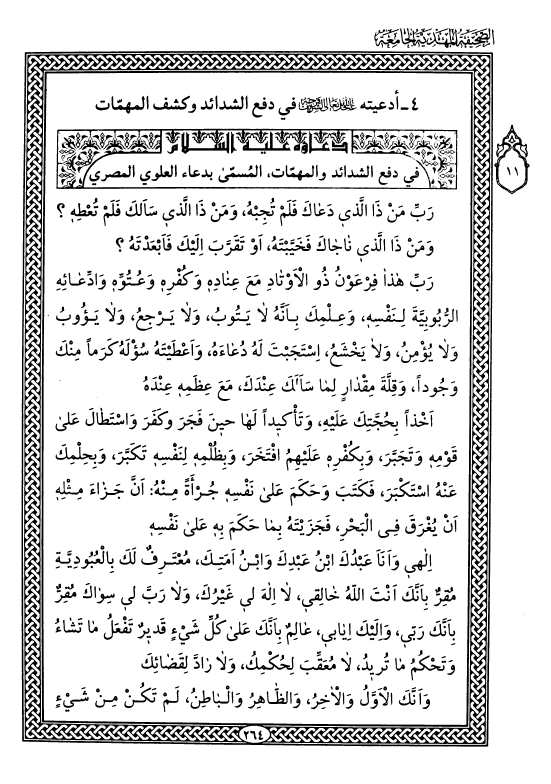 الصحيفة المهدية الجامعة
٤ـ أدعيته في دفع الشدائد وكشف المهمّات
دعاؤه عليه السلام
في دفع الشدائد والمهمّات، المُسمّىٰ بدعاء العلوي المصري
١١
رَبِّ مَنْ ذَا الَّذي دَعٰاكَ فَلَمْ تُجِبْهُ، وَمَنْ ذَا الَّذي سَأَلَكَ فَلَمْ تُعْطِهِ ؟
وَمَنْ ذَا الَّذي نٰاجٰاكَ فَخَيَّبْتَهُ، اَوْ تَقَرَّبَ اِلَيْكَ فَاَبْعَدْتَهُ ؟
رَبِّ هٰذٰا فِرْعَوْنُ ذُو الْاَوْتٰادِ مَعَ عِنٰادِهِ وَكُفْرِهِ وَعُتُوِّهِ وَادِّعٰائِهِ
الرُّبُوبِيَّةَ لِنَفْسِهِ، وَعِلْمِكَ بِاَنَّهُ لٰا يَتُوبُ، وَلٰا يَرْجِعُ، وَلٰا يَؤُوبُ
وَلٰا يُؤْمِنُ، وَلٰا يَخْشَعُ، اِسْتَجَبْتَ لَهُ دُعٰاءَهُ، وَاَعْطَيْتَهُ سُؤْلَهُ كَرَماً مِنْكَ
وَجُوداً، وَقِلَّةَ مِقْدٰارٍ لِمٰا سَأَلَكَ عِنْدَكَ، مَعَ عِظَمِهِ عِنْدَهُ
اَخْذاً بِحُجَّتِكَ عَلَيْهِ، وَتَأْكيداً لَهٰا حينَ فَجَرَ وَكَفَرَ وَاسْتَطٰالَ عَلىٰ
قَوْمِهِ وَتَجَبَّرَ، وَبِكُفْرِهِ عَلَيْهِمُ افْتَخَرَ، وَبِظُلْمِهِ لِنَفْسِهِ تَكَبَّرَ، وَبِحِلْمِكَ
عَنْهُ اسْتَكْبَرَ، فَكَتَبَ وَحَكَمَ عَلىٰ نَفْسِهِ جُرْأَةً مِنْهُ: اَنَّ جَزٰاءَ مِثْلِهِ
اَنْ يُغْرَقَ فِي الْبَحْرِ، فَجَزَيْتَهُ بِمٰا حَكَمَ بِهِ عَلىٰ نَفْسِهِ
اِلٰهي وَاَنَا عَبْدُكَ ابْنُ عَبْدِكَ وَابْنُ اَمَتِكَ، مُعْتَرِفٌ لَكَ بِالْعُبُودِيَّةِ
مُقِرٌّ بِاَنَّكَ اَنْتَ اللّٰهُ خٰالِقي، لٰا اِلٰهَ لي غَيْرُكَ، وَلٰا رَبَّ لي سِوٰاكَ مُقِرٌّ
بِاَنَّكَ رَبّي، وَاِلَيْكَ اِيٰابي، عٰالِمٌ بِاَنَّكَ عَلىٰ كُلِّ شَيْءٍ قَديرٌ تَفْعَلُ مٰا تَشٰاءُ
وَتَحْكُمُ مٰا تُريدُ، لٰا مُعَقِّبَ لِحُكْمِكَ، وَلٰا رٰادَّ لِقَضٰائِكَ
وَاَنَّكَ الْاَوَّلُ وَالْاٰخِرُ، وَالظّٰاهِرُ وَالْبٰاطِنُ، لَمْ تَكُنْ مِنْ شَيْءٍ
٢٦٤